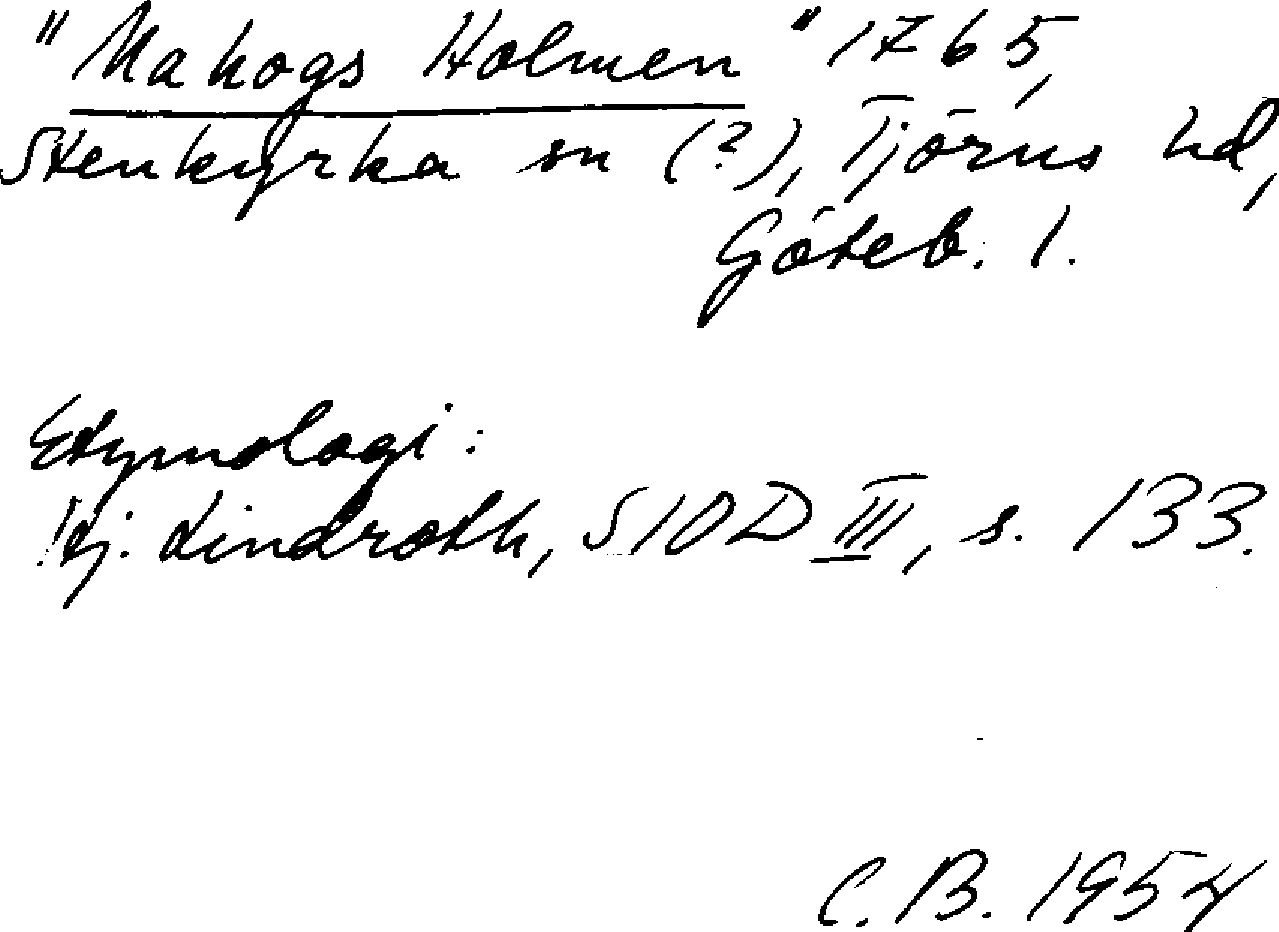 "Makogs Holmen" 1765,
Stenkyrka sn (?), Tjörns hd,
Göteb. l.
Etymologi:
Hj. Lindroth, SIOD III, s. 133.
C. B. 1954